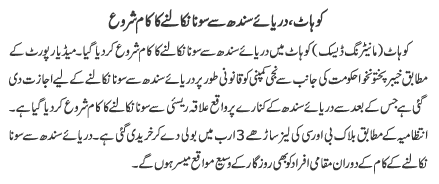 کوہاٹ، دریائے سندھ سے سونا نکالنے کا کام شروع
کوہاٹ (مانیٹرنگ ڈیسک) کوہاٹ میں دریائے سندھ سے سونا نکالنے کا کام شروع کر دیا گیا۔ میڈیا رپورٹ کے
مطابق خیبر پختونخوا حکومت کی جانب سے نجی کمپنی کو قانونی طور پر دریائے سندھ سے سونا نکالنے کے لیے اجازت دی
گئی ہے جس کے بعد سے دریائے سندھ کے کنارے پر واقع علاقہ ریسئی سے سونا نکالنے کا کام شروع کر دیا گیا ہے۔
انتظامیہ کے مطابق بلاک بی اور سی کی لیز ساڑھے 3 ارب میں بولی دے کر خریدی گئی ہے۔ دریائے سندھ سے سونا
نکالنے کے کام کے دوران مقامی افراد کو بھی روزگار کے وسیع مواقع میسر ہوں گے۔